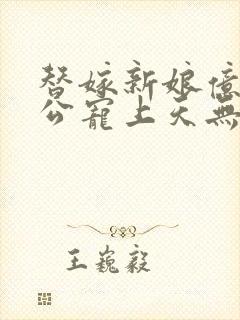 替嫁新娘億
公寵上天無
王巍毅